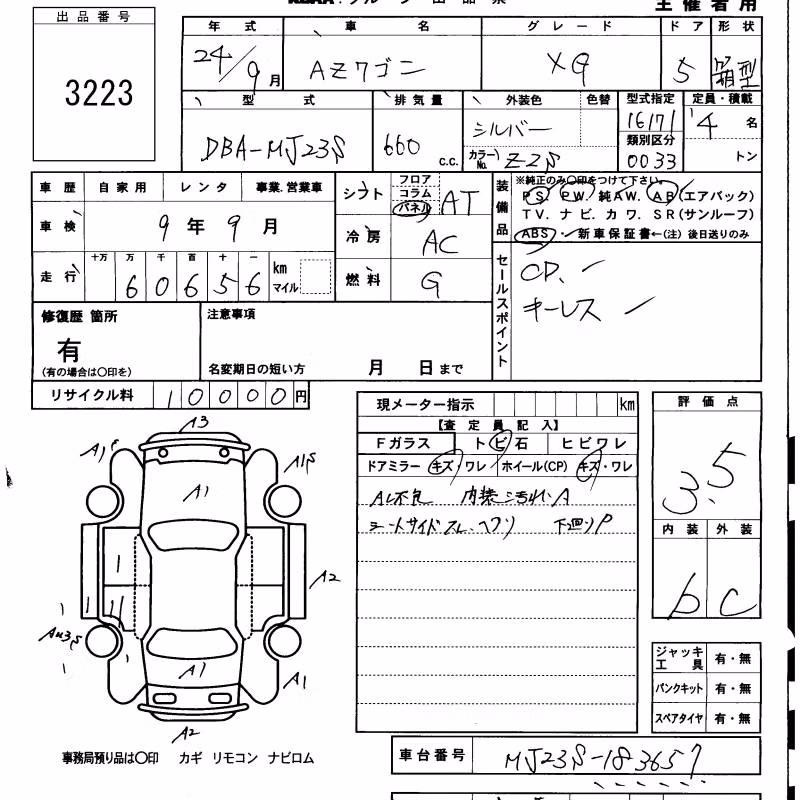 主催者用
出品番号
3223
年式 車名 グレード ドア 形状
24/9月 AZワゴン XG 5 箱型
型式 排気量 外装色 色替 型式指定 定員・積載
DBA-MJ23S 660 c.c. シルバー 16171 4名
カラーNo. Z2S 類別区分 0033 トン
車歴 自家用 レンタ 事業.営業車
車検 9年9月
走行 十万 万 千 百 十 一 km マイル
60656
シフト フロア コラム パネル AT
冷房 AC
燃料 G
装備品 ※純正のみ〇印をつけて下さい。
PS PW. 純AW. AB(エアバック)
TV. ナビ. カワ. SR(サンルーフ)
ABS. 新車保証書←(注) 後日送りのみ
セールスポイント
CD.
キーレス
修復歴 箇所
有
(有の場合は〇印を)
注意事項
名変期日の短い方 月 日まで
リサイクル料 10000円
現メーター指示 km
【査定員記入】
Fガラス トビ石 ヒビワレ
ドアミラー キズ・ワレ ホイール(CP) キズ・ワレ
内装
シートサイド 下廻りP
評価点
3.5
内装 外装
b C
A3
A1
A1
A2
A1
A1
A2
ジャッキ 工具 有・無
パンクキット 有・無
スペアタイヤ 有・無
事務局預り品は〇印 カギ リモコン ナビロム
車台番号 MJ23S-183657